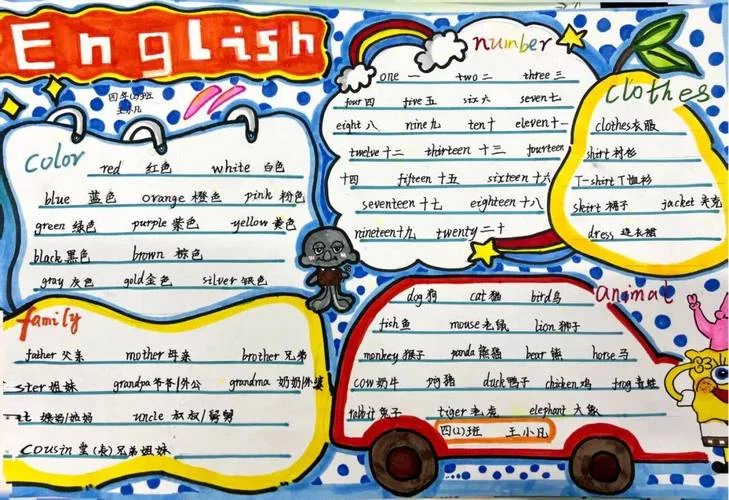 English
四年(2)班
王小凡
color
red 红色 white 白色
blue 蓝色 orange 橙色 pink 粉色
green 绿色 purple 紫色 yellow 黄色
black 黑色 brown 棕色
gray 灰色 gold 金色 silver 银色
number
one 一 two 二 three 三
four 四 five 五 six 六 seven 七
eight 八 nine 九 ten 十 eleven 十一
twelve 十二 thirteen 十三 fourteen
十四 fifteen 十五 sixteen 十六
seventeen 十七 eighteen 十八
nineteen 十九 twenty 二十
clothes
clothes 衣服
shirt 衬衫
T-shirt T恤衫
skirt 裙子 jacket 夹克
dress 连衣裙
family
father 父亲 mother 母亲 brother 兄弟
ster 姐妹 grandpa 爷爷/外公 grandma 奶奶/外婆
uncle 叔叔/舅舅
cousin 堂(表)兄弟姐妹
animal
dog 狗 cat 猫 bird 鸟
fish 鱼 mouse 老鼠 lion 狮子
monkey 猴子 panda 熊猫 bear 熊 horse 马
cow 奶牛 pig 猪 duck 鸭子 chicken 鸡 frog 青蛙
rabbit 兔子 tiger 老虎 elephant 大象
四(2)班 王小凡